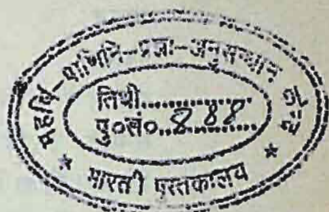 महर्षि-पाणिनि-प्रज्ञा-अनुसन्धान केन्द्र
तिथी..................
पु०सं०..888..........
* भारती पुस्तकालय *